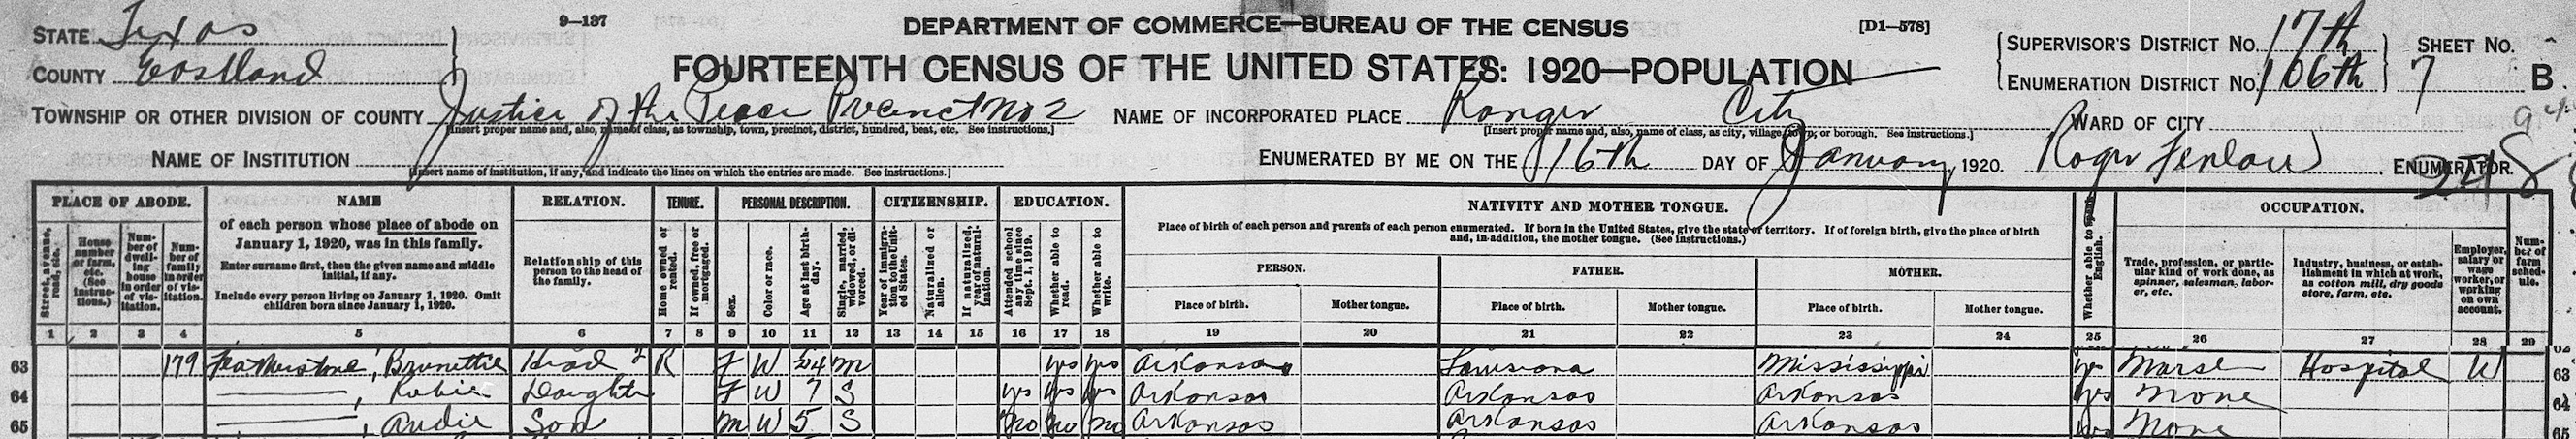 9—137
DEPARTMENT OF COMMERCE—BUREAU OF THE CENSUS
[D1—578]
STATE Texas
COUNTY Eastland
FOURTEENTH CENSUS OF THE UNITED STATES: 1920—POPULATION
SUPERVISOR'S DISTRICT No. 17th
ENUMERATION DISTRICT No. 106th
SHEET No.
7 B
TOWNSHIP OR OTHER DIVISION OF COUNTY Justice of the Peace Precinct No 2
[Insert proper name and, also, name of class, as township, town, precinct, district, hundred, beat, etc. See instructions.]
NAME OF INCORPORATED PLACE Ranger City
[Insert proper name and, also, name of class, as city, village, town, or borough. See instructions.]
WARD OF CITY
NAME OF INSTITUTION
[Insert name of institution, if any, and indicate the lines on which the entries are made. See instructions.]
ENUMERATED BY ME ON THE 16th DAY OF January, 1920. Roger Fenlaw, ENUMERATOR.
PLACE OF ABODE.
Street, avenue, road, etc.
House number or farm, etc. (See instructions.)
Number of dwelling house in order of visitation.
Number of family in order of visitation.
NAME
of each person whose place of abode on
January 1, 1920, was in this family.
Enter surname first, then the given name and middle
initial, if any.
Include every person living on January 1, 1920. Omit
children born since January 1, 1920.
RELATION.
Relationship of this
person to the head of
the family.
TENURE.
Home owned or rented.
If owned, free or mortgaged.
PERSONAL DESCRIPTION.
Sex.
Color or race.
Age at last birthday.
Single, married, widowed, or divorced.
CITIZENSHIP.
Year of immigration to the United States.
Naturalized or alien.
If naturalized, year of naturalization.
EDUCATION.
Attended school any time since Sept. 1, 1919.
Whether able to read.
Whether able to write.
NATIVITY AND MOTHER TONGUE.
Place of birth of each person and parents of each person enumerated. If born in the United States, give the state or territory. If of foreign birth, give the place of birth
and, in addition, the mother tongue. (See instructions.)
PERSON.
Place of birth. Mother tongue.
FATHER.
Place of birth. Mother tongue.
MOTHER.
Place of birth. Mother tongue.
Whether able to speak English.
OCCUPATION.
Trade, profession, or particular kind of work done, as spinner, salesman, laborer, etc.
Industry, business, or establishment in which at work, as cotton mill, dry goods store, farm, etc.
Employer, salary or wage worker, or working on own account.
Number of farm schedule.
1 2 3 4 5 6 7 8 9 10 11 12 13 14 15 16 17 18 19 20 21 22 23 24 25 26 27 28 29
63 179 Featherstone, Brunettie Head R F W 24 M yes yes Arkansas Louisiana Mississippi yes Nurse Hospital W 63
64 ——, Rubie Daughter F W 7 S yes yes yes Arkansas Arkansas Arkansas yes None 64
65 ——, Audie Son M W 5 S no no no Arkansas Arkansas Arkansas yes None 65